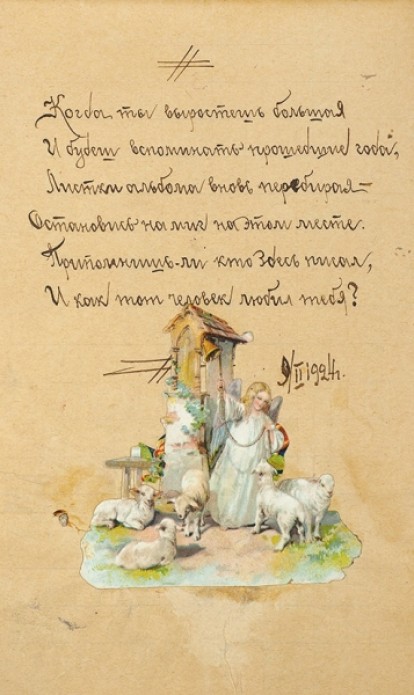 Когда ты выростешь большая
И будеш вспоминать прошедшие года,
Листки альбома вновь перебирая—
Остановись на миг на этом месте.
Припомнишь-ли кто здесь писал,
И как тот человек любил тебя?
9/II 1924г.